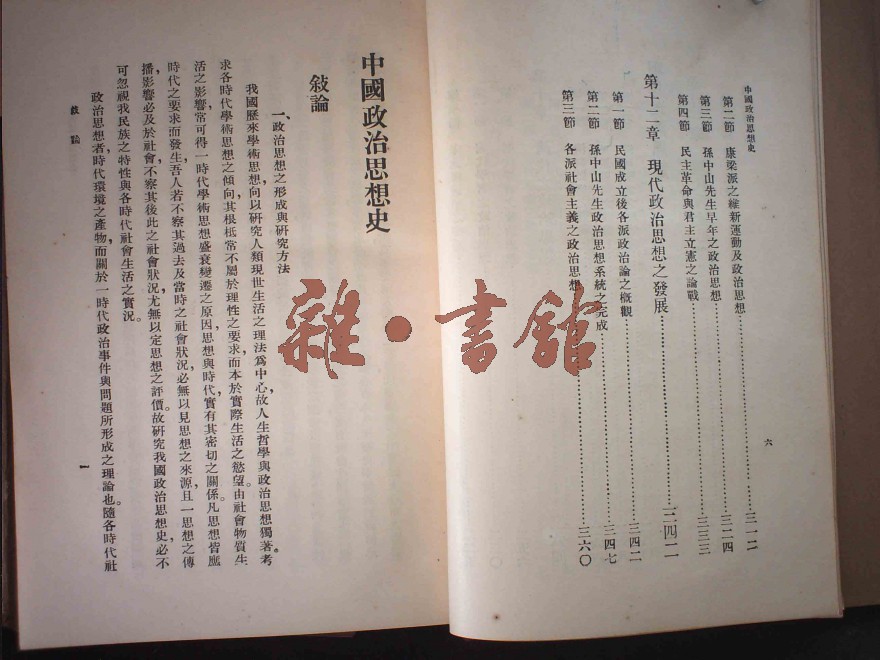 中國政治思想史
第二節 康梁派之維新運動及政治思想……三一二
第三節 孫中山先生早年之政治思想……三二四
第四節 民主革命與君主立憲之論戰……三三三
第十二章 現代政治思想之發展……三四二
第一節 民國成立後各派政治論之概觀……三四二
第二節 孫中山先生政治思想系統之完成……三四七
第三節 各派社會主義之政治思想……三六〇
六
中國政治思想史
敍論
一、政治思想之形成與研究方法
我國歷來學術思想向以研究人類現世生活之理法爲中心,故人生哲學與政治思想獨著。考
求各時代學術思想之傾向,其根柢常不屬於理性之要求,而本於實際生活之慾望。由社會物質生
活之影響,常可得一時代學術思想盛衰變遷之原因,思想與時代實有其密切之關係。凡思想皆應
時代之要求而發生,吾人若不察其過去及當時之社會狀況,必無以見思想之來源;且一思想之傳
播,影響必及於社會,不察其後此之社會狀況,尤無以定思想之評價。故研究我國政治思想史,必不
可忽視我民族之特性與各時代社會生活之實況。
政治思想者,時代環境之產物,而關於一時代政治事件與問題所形成之理論也。隨各時代社
敍論
一
雜·書館